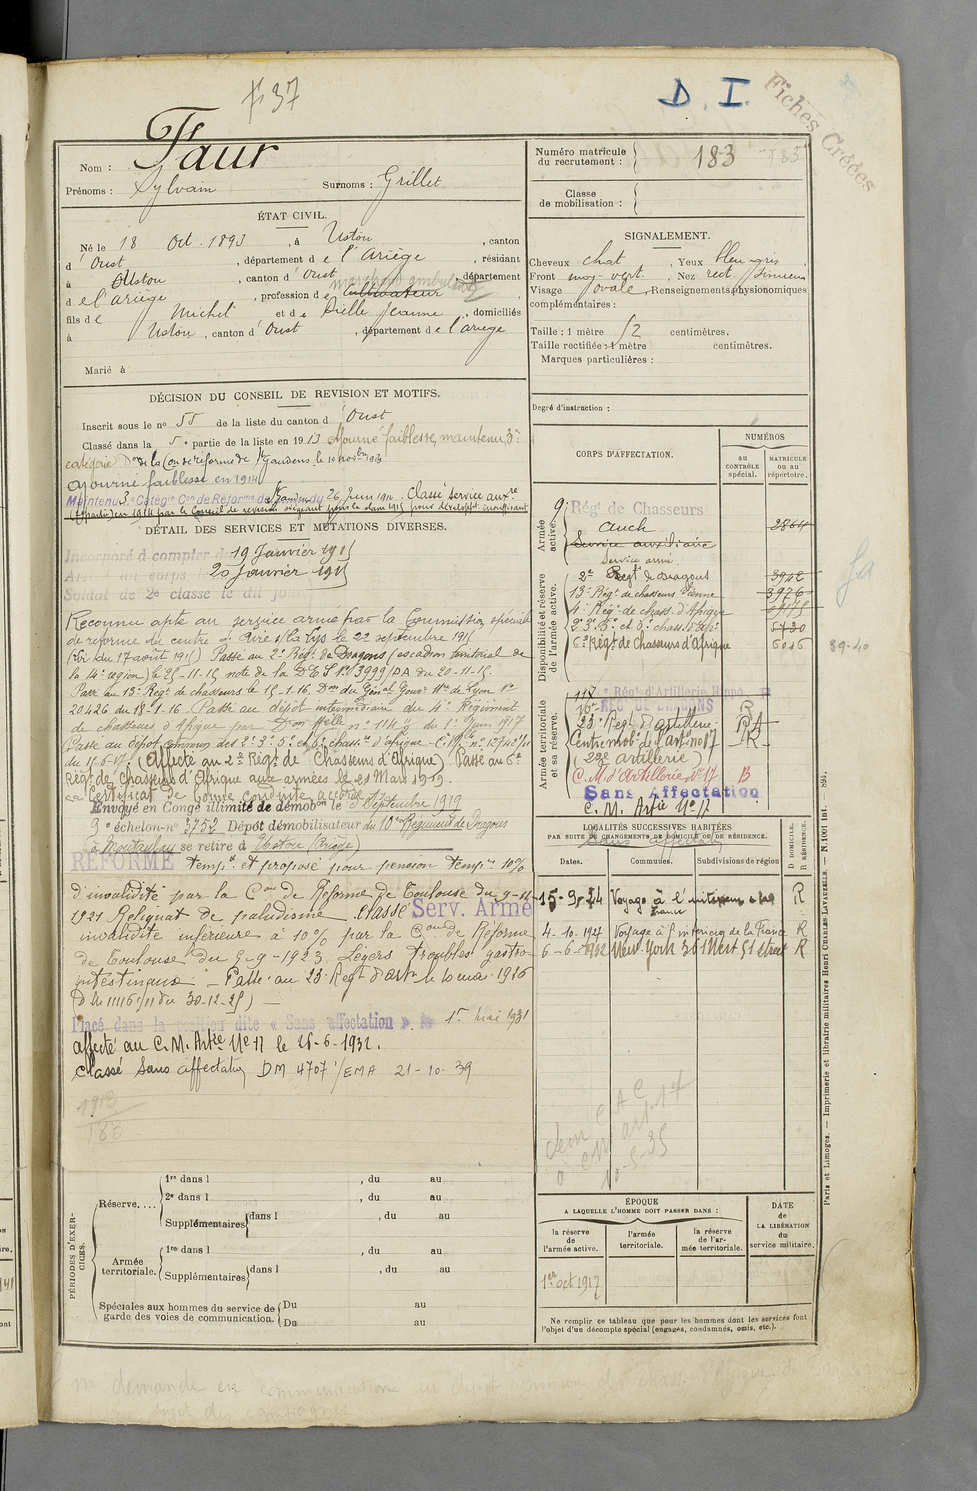 37
D. I.
Fiches Créées
Nom : Faur
Prénoms : Sylvain Surnoms : Grillet
Numéro matricule du recrutement : 183
Classe de mobilisation :
ÉTAT CIVIL.
Né le 18 Oct. 1893, à Ustou, canton
d'Oust, département de l'Ariège, résidant
à Ustou, canton d'Oust, département
de l'ariège, profession de cultivateur
fils de Michel et de Jeanne, domiciliés
à Ustou, canton d'Oust, département de l'ariège
Marié à
SIGNALEMENT.
Cheveux chat, Yeux bleu-gris
Front moy. vert., Nez rect. sinueux
Visage ovale, Renseignements physionomiques
complémentaires :
Taille : 1 mètre 62 centimètres.
Taille rectifiée : 1 mètre centimètres.
Marques particulières :
Degré d'instruction :
DÉCISION DU CONSEIL DE REVISION ET MOTIFS.
Inscrit sous le no 55 de la liste du canton d'Oust
Classé dans la 5e partie de la liste en 1913 Ajourné faiblesse, maintenu 3e
catégorie Don de la Con de réforme de St Gaudens le 10 novbre 1913
ajourné faiblesse en 1914
Maintenu 3e Catégie Con de Réforme de St Gaudens du 26 Juin 1914. Classé service auxre
DÉTAIL DES SERVICES ET MUTATIONS DIVERSES.
Incorporé à compter du 19 Janvier 1915
Arrivé au corps le 20 Janvier 1915
Soldat de 2e classe le dit jour
Reconnu apte au service armé par la Commission spéciale
de réforme du centre d'Aire s/la Lys le 22 septembre 1915
(Loi du 17 août 1915) Passé au 2e Régt de Dragons (escadron territorial de
la 4e région) le 25-11-15 note de la D E S no 3999/DA du 20-11-15.
Passé au 13e Régt de chasseurs le 15-1-16. Don du Génal Gouvr Mre de Lyon no
20426 du 18-1-16. Passé au dépôt intermédiaire du 4e Régiment
de chasseurs d'Afrique par Don Mlle no 114 du 1er Juin 1917
Passé au dépôt commun des 2e 3e 5e et 6e chassrs d'afrique
du 15-6-17. (Affecté au 2e Régt de Chasseurs d'Afrique). Passé au 6e
Régt de Chasseurs d'Afrique aux armées le 21 Mars 1919.
Certificat de bonne conduite accordé
Envoyé en Congé illimité de démobon le 5 Septembre 1919
9e échelon no 3752 Dépôt démobilisateur du 10e Régiment de Dragons
à Montauban se retire à Ustou (Ariège)
RÉFORMÉ tempre et proposé pour pension tempre 10%
d'invalidité par la Con de Réforme de Toulouse du
1921 Reliquat de paludisme. classé Serv. Armé
invalidité inférieure à 10% par la Con de Réforme
de Toulouse du 9-9-1923. Légers troubles gastro-
intestinaux – Passé au 23e Régt d'artie le 10 mai 1926
du 30-12-25) –
Placé dans la position dite « Sans affectation ». le 15 mai 1931
affecté au C.M. Artie No 17 le 25-6-1932.
Classé Sans affectation DM 4707 1/EMA 21-10-39
1913
183
CORPS D'AFFECTATION.
NUMÉROS
au CONTRÔLE spécial.
MATRICULE ou au répertoire.
Armée active.
9e Régt de Chasseurs
Auch 2864
Service auxiliaire
Service armé
Disponibilité et réserve de l'armée active.
2e Régt de Dragons
13e Régt de chasseurs Vienne 3976
4e Régt de chass. d'Afrique
2e 3e 5e et 6e chass. d'Af. 5730
6e Régt de Chasseurs d'Afrique 6016
39-40
Armée territoriale et sa réserve.
117e Régt d'Artillerie Hippo.
REGt DE DRAGONS R
23e Régt d'artillerie
Centre mob. de l'artie no 17 R
(22e artillerie)
C. M. d'Artillerie No 17 R
Sans Affectation
C. M. Artie No 17
LOCALITÉS SUCCESSIVES HABITÉES
PAR SUITE DE CHANGEMENTS DE DOMICILE OU DE RÉSIDENCE.
Sans affectation
Dates. Communes. Subdivisions de région.
D DOMICILE. R RÉSIDENCE.
15-9-24 Voyage à l'intérieur de la France R
4-10-1927 Voyage à l'intérieur de la France R
6-6-1932 New-York 361 West 51 street R
10-5-35
PÉRIODES D'EXERCICES.
Réserve....
1re dans l , du au
2e dans l , du au
Supplémentaires dans l , du au
Armée territoriale.
1re dans l , du au
Supplémentaires dans l , du au
Spéciales aux hommes du service de garde des voies de communication.
Du au
Du au
ÉPOQUE
A LAQUELLE L'HOMME DOIT PASSER DANS :
la réserve de l'armée active.
l'armée territoriale.
la réserve de l'armée territoriale.
DATE de LA LIBÉRATION du service militaire.
1er oct 1917
Ne remplir ce tableau que pour les hommes dont les services font
l'objet d'un décompte spécial (engagés, condamnés, omis, etc.).
Paris et Limoges. — Imprimerie et librairie militaires Henri CHARLES-LAVAUZELLE. — N. 1001 int. 894.